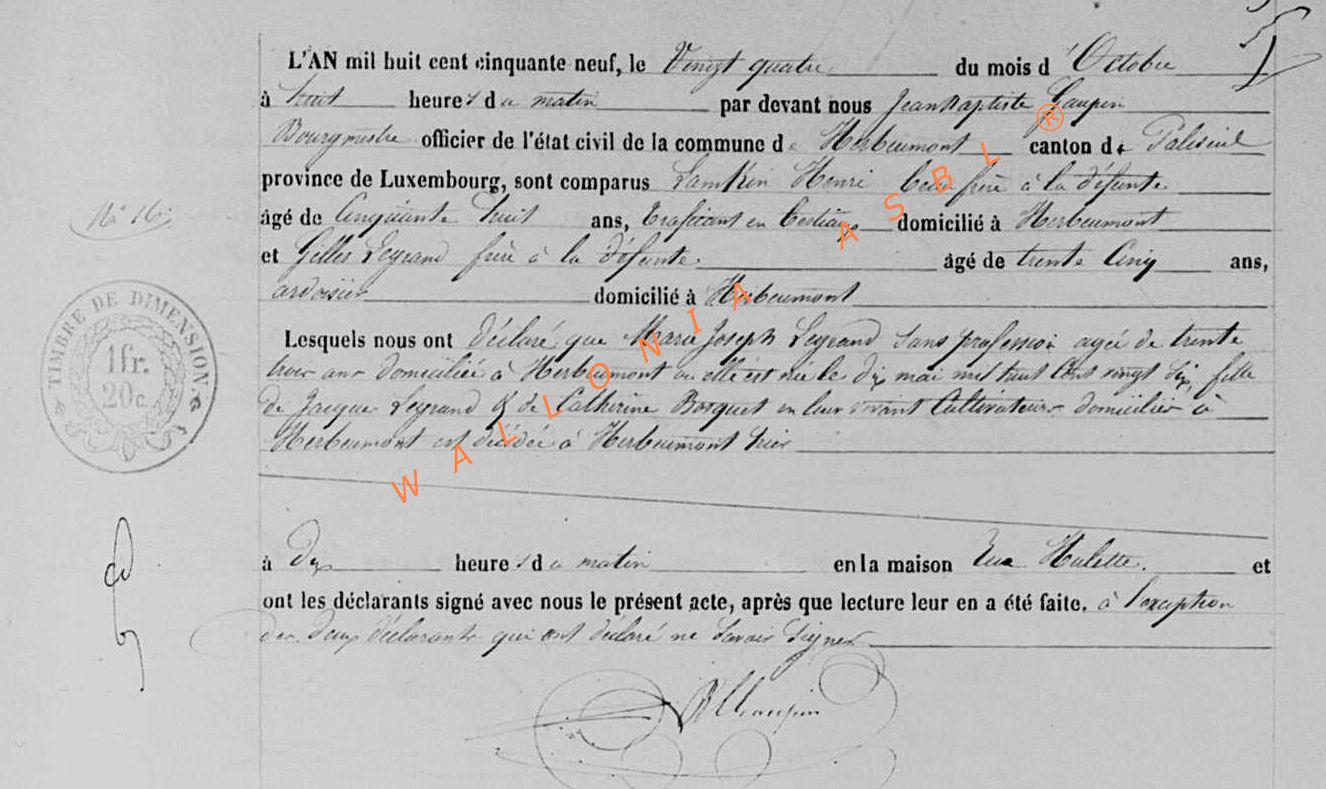 L'AN mil huit cent cinquante neuf, le Vingt quatre du mois d'Octobre
à huit heures du matin par devant nous Jean Baptiste Gaupin
Bourgmestre officier de l'état civil de la commune de Herbeumont canton de Paliseul
province de Luxembourg, sont comparus Lamkin Henri beau frère à la défunte
N° 16
âgé de Cinquante huit ans, trafiquant en bestiaux domicilié à Herbeumont
et Gilles Legrand frère à la défunte âgé de trente Cinq ans,
ardoisier domicilié à Herbeumont
TIMBRE DE DIMENSION.
1 fr.
20 c.
Lesquels nous ont déclaré que Marie Joseph Legrand sans profession agée de trente
trois ans domiciliée à Herbeumont où elle est née le dix mai mil huit Cent vingt six, fille
de Jacques Legrand & de Catherine Bosquet en leur vivant Cultivateurs domiciliés à
Herbeumont est décédée à Herbeumont hier
à Dix heures du matin en la maison Rue Hulette. et
ont les déclarants signé avec nous le présent acte, après que lecture leur en a été faite. à l'exception
des deux déclarants qui ont déclaré ne savoir signer
WALLONIA ASBL ®